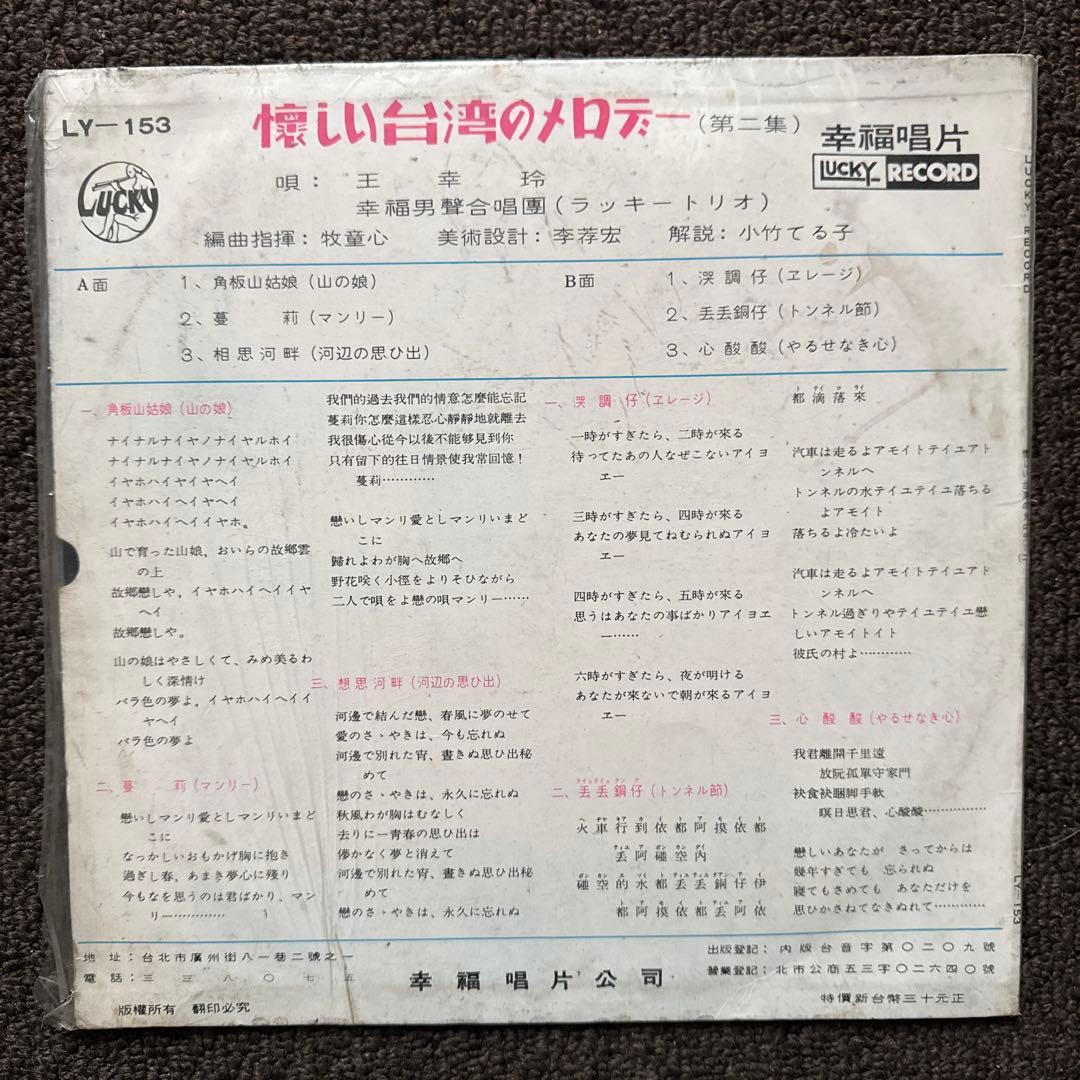 LY-153
懐しい台湾のメロデー(第二集)
幸福唱片
LUCKY RECORD
LUCKY
唄: 王幸玲
幸福男聲合唱團(ラッキートリオ)
編曲指揮: 牧童心 美術設計: 李荐宏 解説: 小竹てる子
A面
1、角板山姑娘(山の娘)
2、蔓 莉(マンリー)
3、相思河畔(河辺の思ひ出)
B面
1、哭調仔(ヱレージ)
2、丟丟銅仔(トンネル節)
3、心酸酸(やるせなき心)
一、角板山姑娘(山の娘)
ナイナルナイヤノナイヤルホイ
ナイナルナイヤノナイヤルホイ
イヤホハイヤイヤヘイ
イヤホハイヘイヤヘイ
イヤホハイヘイイヤホ。
山で育った山娘,おいらの故鄉雲
の上
故鄉戀しや,イヤホハイヘイイヤ
ヘイ
故鄉戀しや。
山の娘はやさしくて、みめ美るわ
しく深情け
バラ色の夢よ,イヤホハイヘイイ
ヤヘイ
バラ色の夢よ
二、蔓 莉(マンリー)
戀いしマンリ愛としマンリいまど
こに
なつかしいおもかげ胸に抱き
過ぎし春,あまき夢心に殘り
今もなを思うのは君ばかり、マン
リー…………
我們的過去我們的情意怎麼能忘記
蔓莉你怎麼這樣忍心靜靜地就離去
我很傷心從今以後不能夠見到你
只有留下的往日情景使我常回憶!
蔓莉…………
戀いしマンリ愛としマンリいまど
こに
歸れよわが胸へ故鄉へ
野花咲く小徑をよりそひながら
二人で唄をよ戀の唄マンリー……
三、想思河畔(河辺の思ひ出)
河邊で結んだ戀、春風に夢のせて
愛のさゝやきは、今も忘れぬ
河邊で別れた宵、晝きぬ思ひ出秘
めて
戀のさゝやきは、永久に忘れぬ
秋風わが胸はむなしく
去りにー青春の思ひ出は
儚かなく夢と消えて
河邊で別れた宵、晝きぬ思ひ出秘
めて
戀のさゝやきは、永久に忘れぬ
一、哭調仔(ヱレージ)
一時がすぎたら、二時が來る
待ってたあの人なぜこないアイヨ
ヱー
三時がすぎたら、四時が來る
あなたの夢見てねむられぬアイヨ
ヱー
四時がすぎたら、五時が來る
思うはあなたの事ばかりアイヨヱ
ー……
六時がすぎたら、夜が明ける
あなたが來ないで朝が來るアイヨ
ヱー
二、丟丟銅仔(トンネル節)
火車行到依都阿摸依都
丟阿碰空內
碰空的水都丟丟銅仔伊
都阿摸依都丟阿依
都滴落來
汽車は走るよアモイトテイユアト
ンネルへ
トンネルの水テイユテイユ落ちる
よアモイト
落ちるよ冷たいよ
汽車は走るよアモイトテイユアト
ンネルへ
トンネル過ぎりやテイユテイユ戀
しいアモイトイト
彼氏の村よ…………
三、心酸酸(やるせなき心)
我君離開千里遠
放阮孤單守家門
袂食袂睏脚手軟
暝日思君、心酸酸……………
戀しいあなたが さってからは
幾年すぎても 忘られぬ
寢てもさめても あなただけを
思ひかさねてなきぬれて…………
地址:台北市廣州街八一巷二號之一
電話:三三八〇七五
版權所有 翻印必究
幸福唱片公司
出版登記:內版台音字第〇二〇九號
營業登記:北市公商五三字〇二六四〇號
特價新台幣三十元正
LUCKY RECORD
LY-153